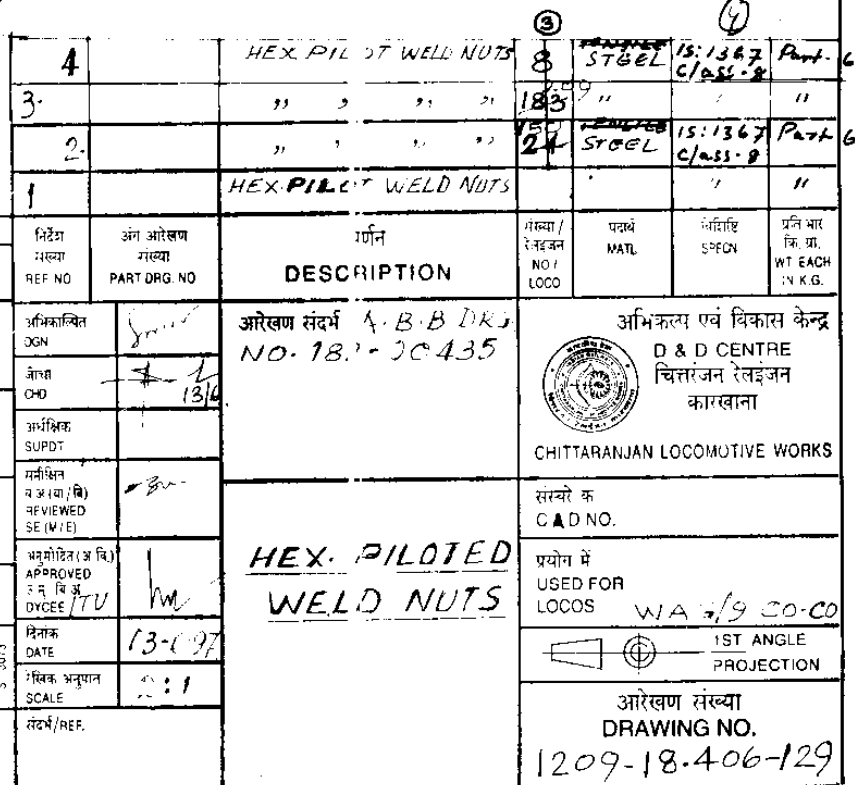 3
4
4 HEX PILOT WELD NUTS 8 STEEL IS:1367 Part-6
Class-8
3. " " " " 183 " " "
2. " " " " 24 STEEL IS:1367 Part 6
Class-8
1 HEX.PILOT WELD NUTS " "
निर्देश संख्या
REF NO
अंग आरेखण संख्या
PART DRG. NO
वर्णन
DESCRIPTION
संख्या / रेलइंजन
NO /
LOCO
पदार्थ
MATL
विशिष्टि
SPECN
प्रति भार
कि. ग्रा.
WT EACH
IN K.G.
अभिकल्पित
DGN
जांचा
CHD
13/6
अधीक्षक
SUPDT
REVIEWED
SE (M/E)
अनुमोदित
APPROVED
DYCEE / TU
दिनांक
DATE
अनुपात
SCALE
2:1
संदर्भ/REF.
आरेखण संदर्भ A.B.B DRG
NO.
HEX. PILOTED
WELD NUTS
अभिकल्प एवं विकास केन्द्र
D & D CENTRE
चित्तरंजन रेलइंजन
कारखाना
CHITTARANJAN LOCOMOTIVE WORKS
CAD NO.
प्रयोग में
USED FOR
LOCOS
CO-CO
1ST ANGLE
PROJECTION
आरेखण संख्या
DRAWING NO.
1209-18.406-129